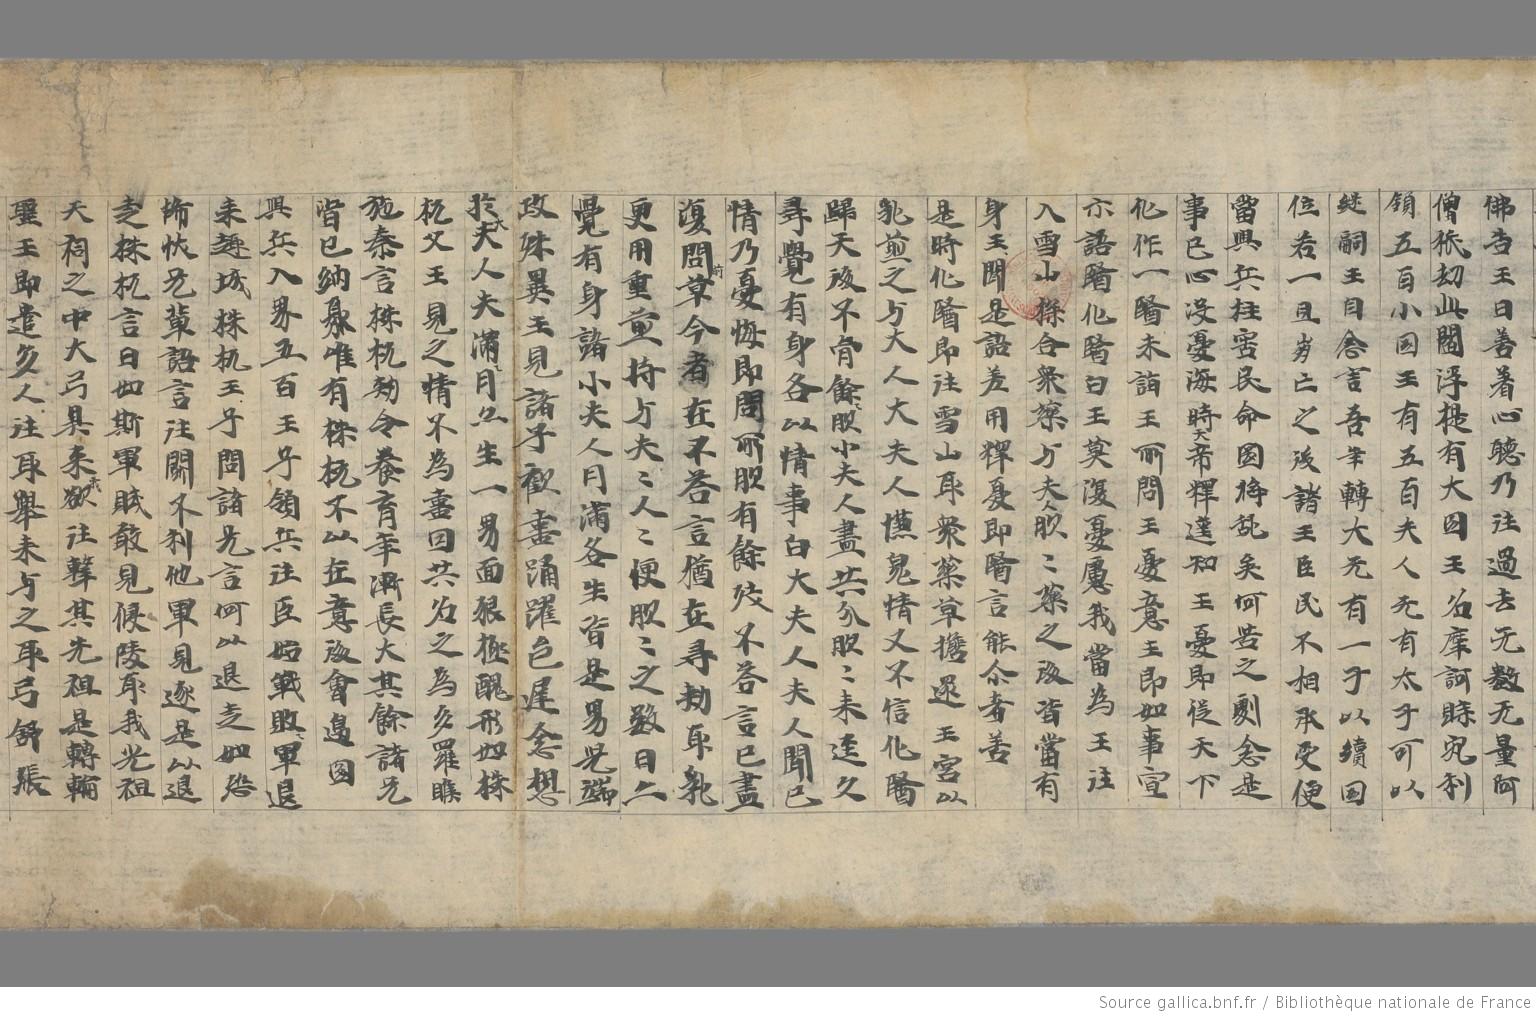 佛告王曰善着心聽乃往過去无數无量阿
僧祇劫此閻浮提有大国王名摩訶賖宛利
領五百小国王有五百夫人无有太子可以
継嗣王自念言吾年轉大无有一子以續国
位若一旦崩亡之後諸王臣民不相承受便
當興兵抂害民命国將乱矣何苦之劇念是
事已心没憂海時天帝釋遥知王憂即從天下
化作一醫来詣王所問王憂意王即如事宣
示語醫化醫曰王莫復憂慮我當為王往
入雪山採合衆藥与夫人服々藥之後皆當有
身王聞是語差用釋憂即醫言能尒者善
是時化醫即往雪山取衆藥草擔還王宮以
乳煎之与大人大夫人懡鬼情又不信化醫
歸天後不肯餘服小夫人盡共分服々未逕久
尋覺有身各以情事白大夫人夫人聞已
情乃憂悔即問所服有餘殘不荅言已盡
復問前草今者在不荅言猶在尋勑取乳
更用重煎持与夫々人々便服々之數日亦
覺有身諸小夫人月滿各生皆是男皃端
政殊異王見諸子歡喜踊躍色遅念想
於大夫人夫滿月亦生一男面狠極醜形如株
杌父王見之情不為喜因共名之為多羅睺
施秦言株杌勑令養育年漸長大其餘諸兄
皆已納娶唯有株杌不以在意後會邊国
興兵入界五百王子領兵往臣始戰敗軍退
来趣城株杌王子問諸兄言何以退走如恐
怖状兄輩語言往鬬不利他軍見逐是以退
走株杌言曰如斯軍賊敢見侵陵取我先祖
天祠之中大弓具来我欲往擊其先祖是轉輪
聖王即遣多人往取舉来与之取弓舒張
Source gallica.bnf.fr / Bibliothèque nationale de France